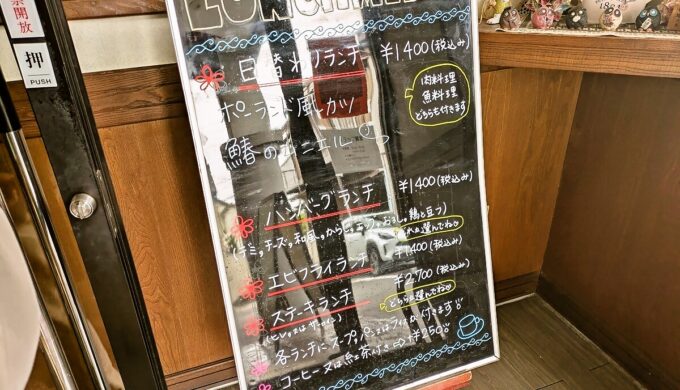 禁開放
押
PUSH
LUNCH MENU
日替わりランチ ¥1400(税込み)
ポーランド風カツ
鰆のムニエル
肉料理
魚料理
どちらも付きます
ハンバーグランチ ¥1400(税込み)
(デミ,チーズ,和風,からし
エビフライランチ ¥1400(税込み)
ステーキランチ ¥2,700(税込み)
どちらか選んでね
各ランチにスープ,パン又はライスが付きます
コーヒー又は紅茶付き ⇒ +¥250